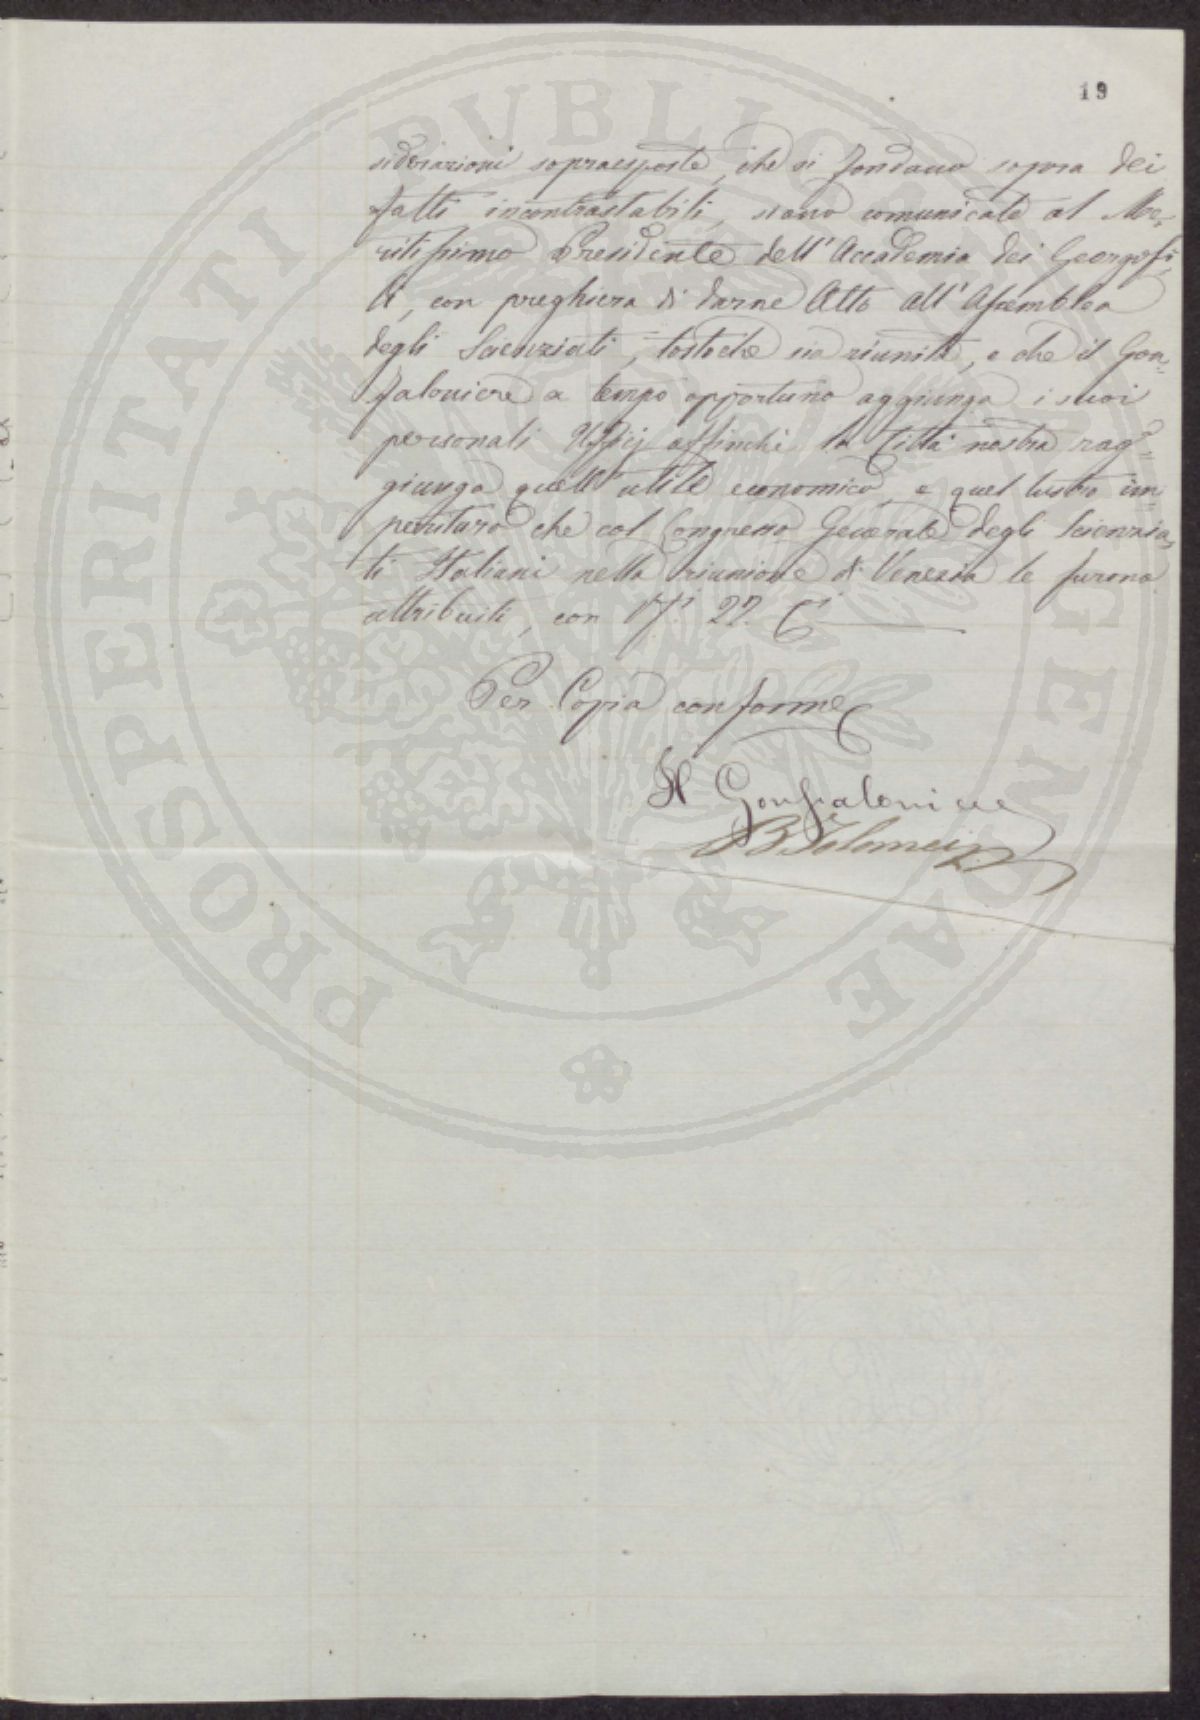 19
siderazioni sopraesposte, che si fondano sopra dei
fatti incontrastabili, siano comunicate al Me-
ritissimo Presidente dell'Accademia dei Georgofi-
li, con preghiera di darne Atto all'Assemblea
degli Scienziati, tostoche sia riunita, e che il Gon-
faloniere a tempo opportuno aggiunga i suoi
personali Ufficj affinchè la Città nostra rag-
giunga quell'utile economico, e quel lustro im-
perituro che col Congresso Generale degli Scienzia-
ti Italiani nella riunione di Venezia le furono
attribuiti, con Vi. 27. Ci
Per Copia conforme
Il Gonfaloniere
B Tolomei
PROSPERITATI PUBLICAE AUGENDAE